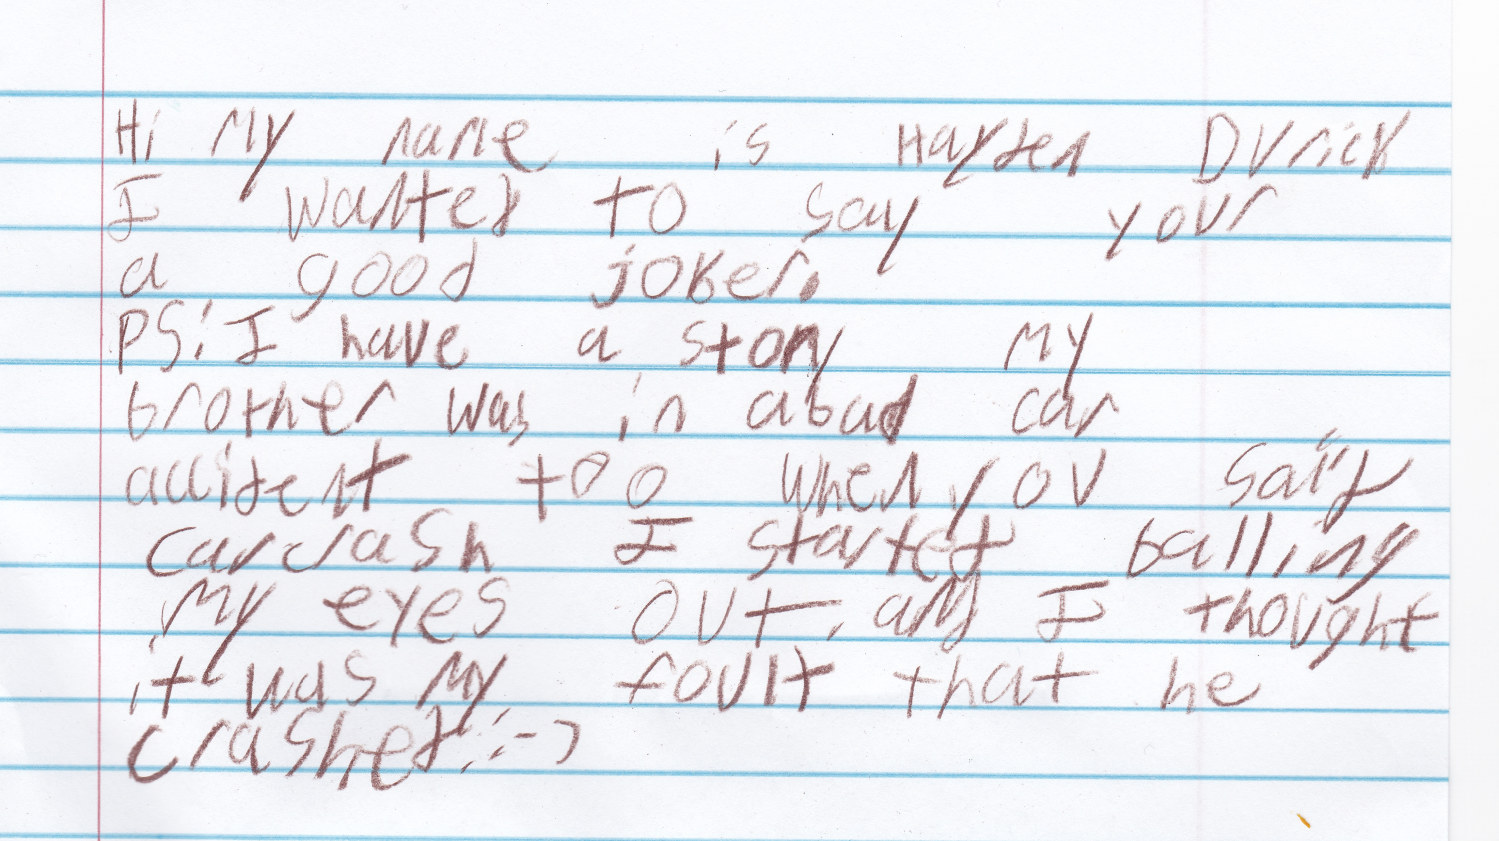 Hi My name is Hayden Durick
I wanted to say your
a good joker.
PS: I have a story my
brother was in abad car
accident too when you said
carcrash I started balling
my eyes out. and I thought
it was my foult that he
crashed. :-)